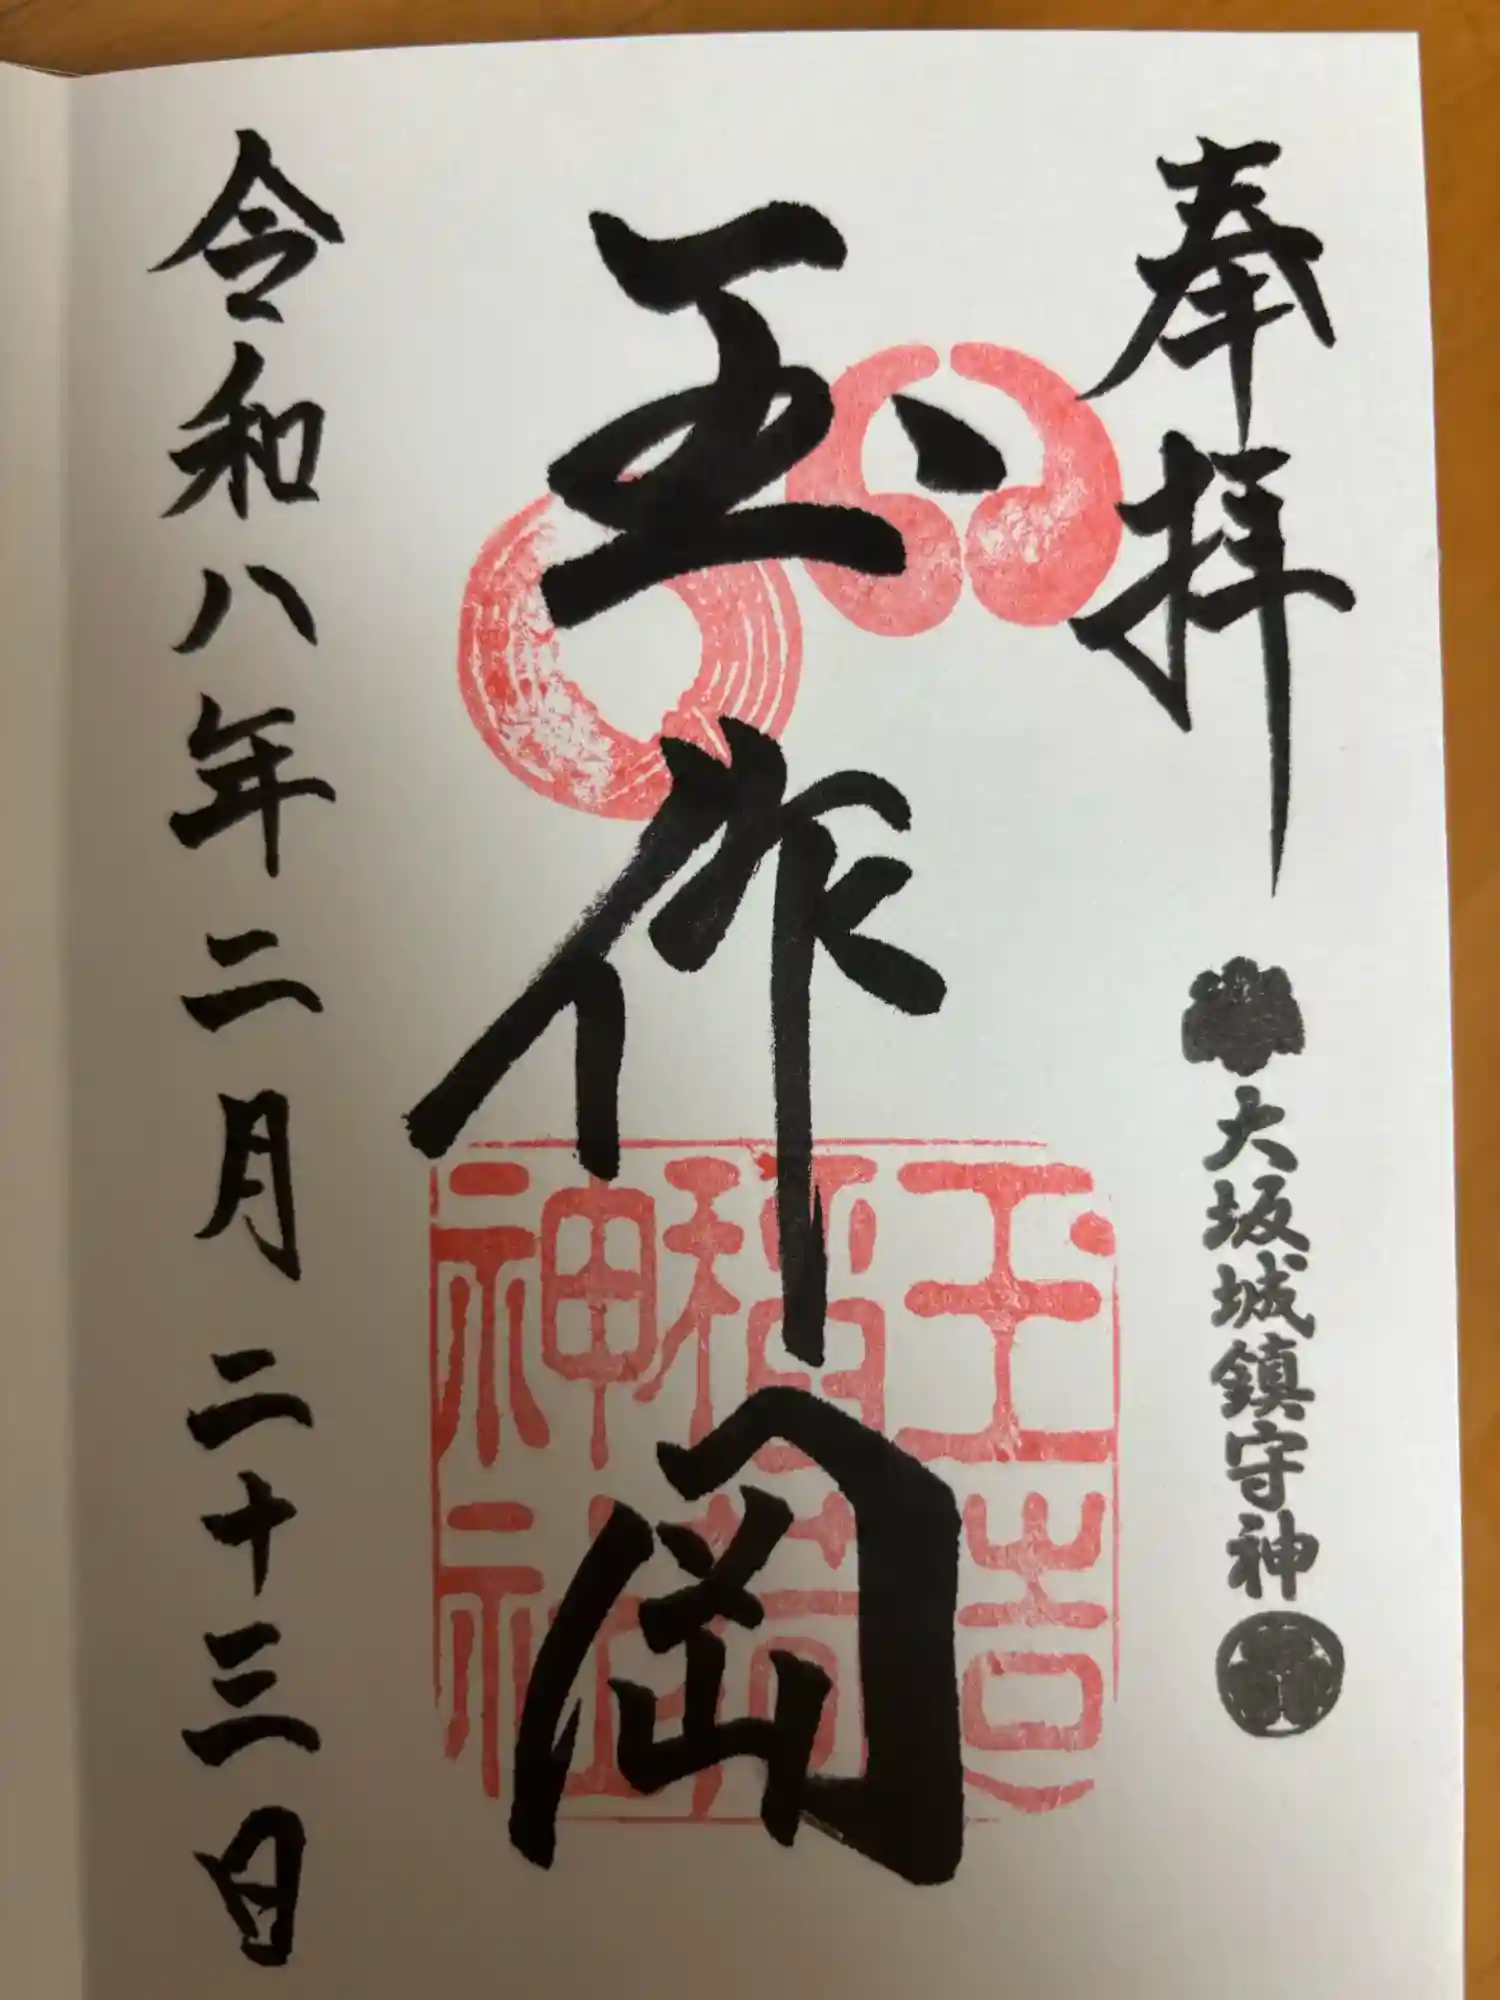 奉拝
大坂城鎮守神
玉作岡
玉造
稲荷
神社
令和八年二月二十三日